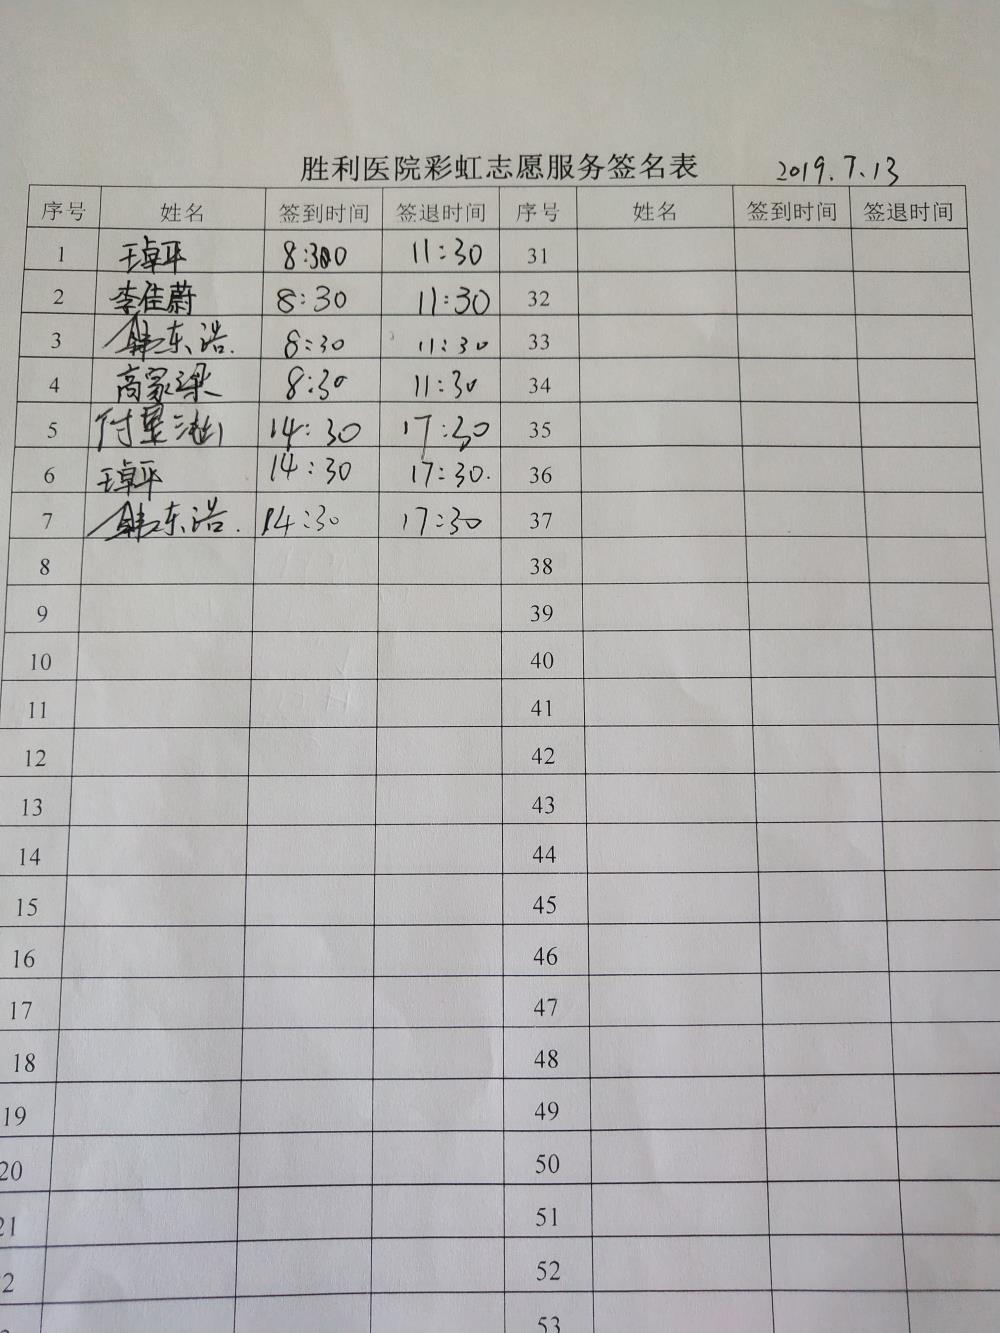 胜利医院彩虹志愿服务签名表 2019.7.13
序号 姓名 签到时间 签退时间 序号 姓名 签到时间 签退时间
1 王卓平 8:30 11:30 31
2 李佳蔚 8:30 11:30 32
3 韩东浩. 8:30 11:30 33
4 高家梁 8:30 11:30 34
5 付星 14:30 17:30 35
6 王卓平 14:30 17:30. 36
7 韩东浩. 14:30 17:30 37
8 38
9 39
10 40
11 41
12 42
13 43
14 44
15 45
16 46
17 47
18 48
19 49
20 50
21 51
2 52
53